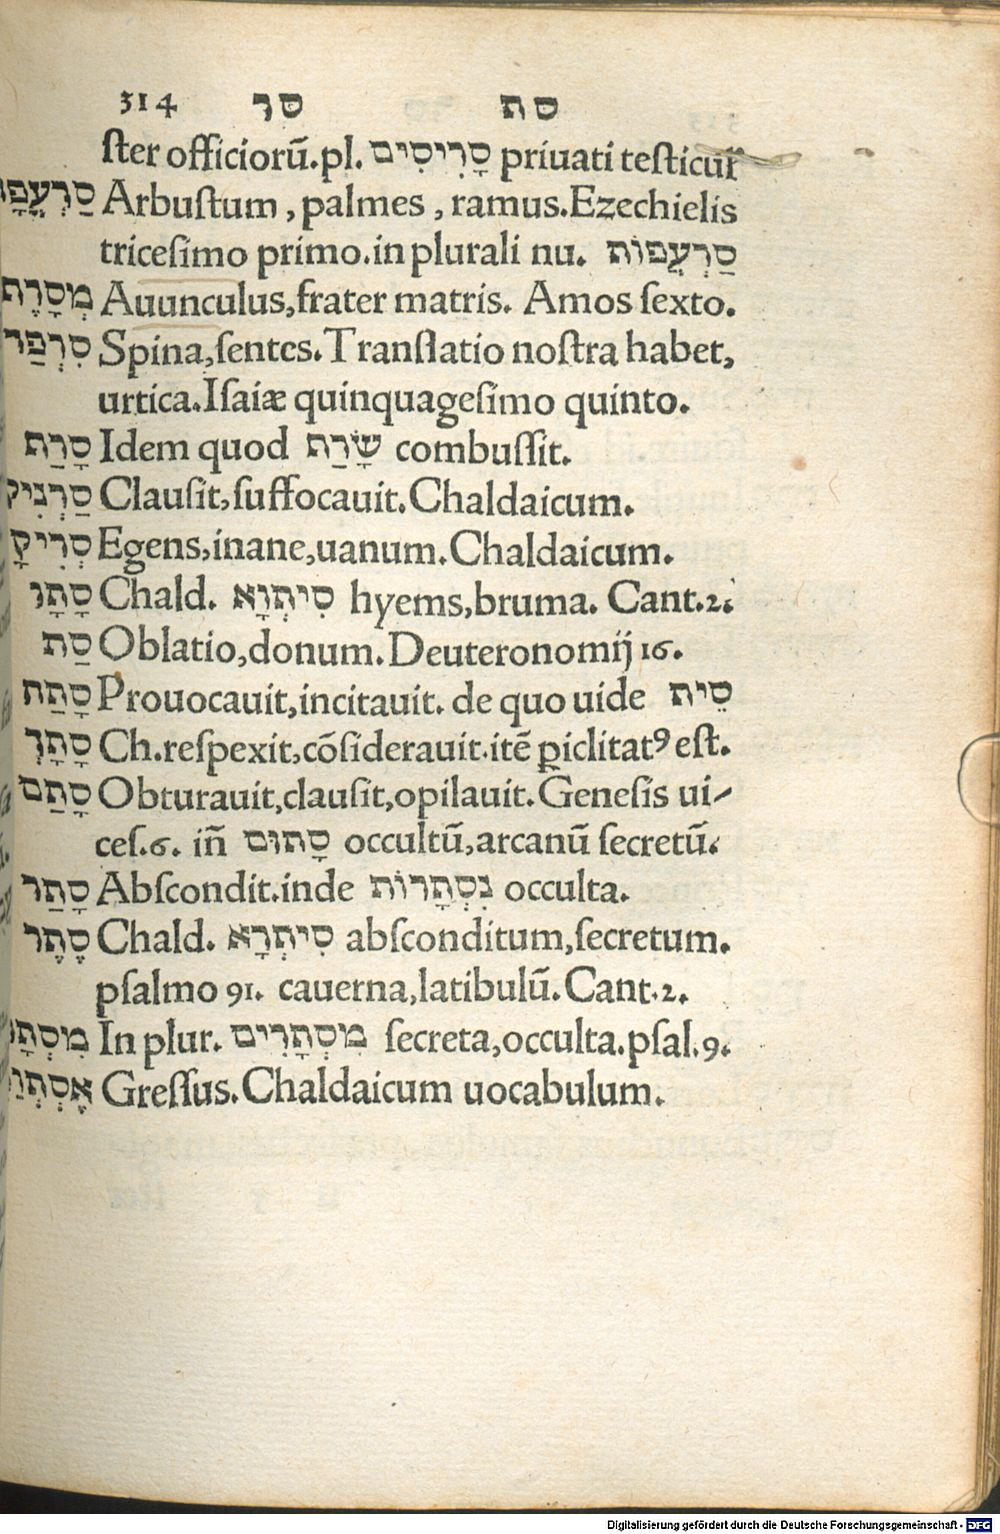 314 סר סת
ſter officiorū.pl. סָרִיסִים priuati teſticul
Arbuſtum, palmes, ramus.Ezechielis
triceſimo primo.in plurali nu. סַרְעֲפוֹת
מְסָרֶת Auunculus,frater matris. Amos ſexto.
סִרְפַּר Spina,ſentes.Tranſlatio noſtra habet,
urtica.Iſaiæ quinquageſimo quinto.
סָרַת Idem quod שָׂרַת combuſſit.
סַרְנִיק Clauſit,ſuffocauit.Chaldaicum.
סְרִיקָ Egens,inane,uanum.Chaldaicum.
סָתָו Chald. סִיתְוָא hyems,bruma. Cant.2.
סַת Oblatio,donum.Deuteronomij 16.
סָתַת Prouocauit,incitauit. de quo uide סִית
סָתָךְ Ch.reſpexit,cōſiderauit.itē ꝑiclitatꝰ eſt.
סָתַם Obturauit,clauſit,opilauit.Geneſis ui-
ceſ.6. iñ סָתוּם occultū,arcanū ſecretū.
סָתַר Abſcondit.inde נִסְתָּרוֹת occulta.
סֶתֶר Chald. סִיתְרָא abſconditum,ſecretum.
pſalmo 91. cauerna,latibulū.Cant.2.
In plur. מִסְתָּרִים ſecreta,occulta.pſal.9.
Greſſus.Chaldaicum uocabulum.
Digitalisierung gefördert durch die Deutsche Forschungsgemeinschaft - DFG